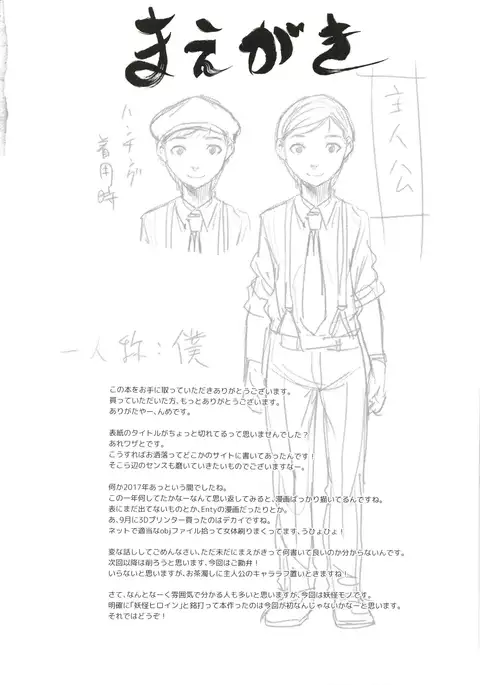 まえがき
主人公
ハンチング
着用時
一人称:僕
この本をお手に取っていただきありがとうございます。
買っていただいた方、もっとありがとうございます。
ありがたやー、んめです。
表紙のタイトルがちょっと切れてるって思いませんでした?
あれワザとです。
こうすればお洒落ってどこかのサイトに書いてあったんです!
そこら辺のセンスも磨いていきたいものでございますなー。
何か2017年あっという間でしたね。
この一年何してたかなーなんて思い返してみると、漫画ばっかり描いてるんですね。
表にまだ出てないものとか、Entyの漫画だったりとか。
あ、9月に3Dプリンター買ったのはデカイですね。
ネットで適当なobjファイル拾って女体刷りまくってます、うひょひょ!
変な話ししてごめんなさい、ただ未だにまえがきって何書いて良いのか分からないんです。
次回以降は削ろうと思います、今回はご勘弁!
いらないと思いますが、お茶濁しに主人公のキャララフ置いときますね!
さて、なんとなーく雰囲気で分かる人も多いと思いますが、今回は妖怪モノです。
明確に「妖怪ヒロイン」と銘打って本作ったのは今回が初なんじゃないかなーと思います。
それではどうぞ!